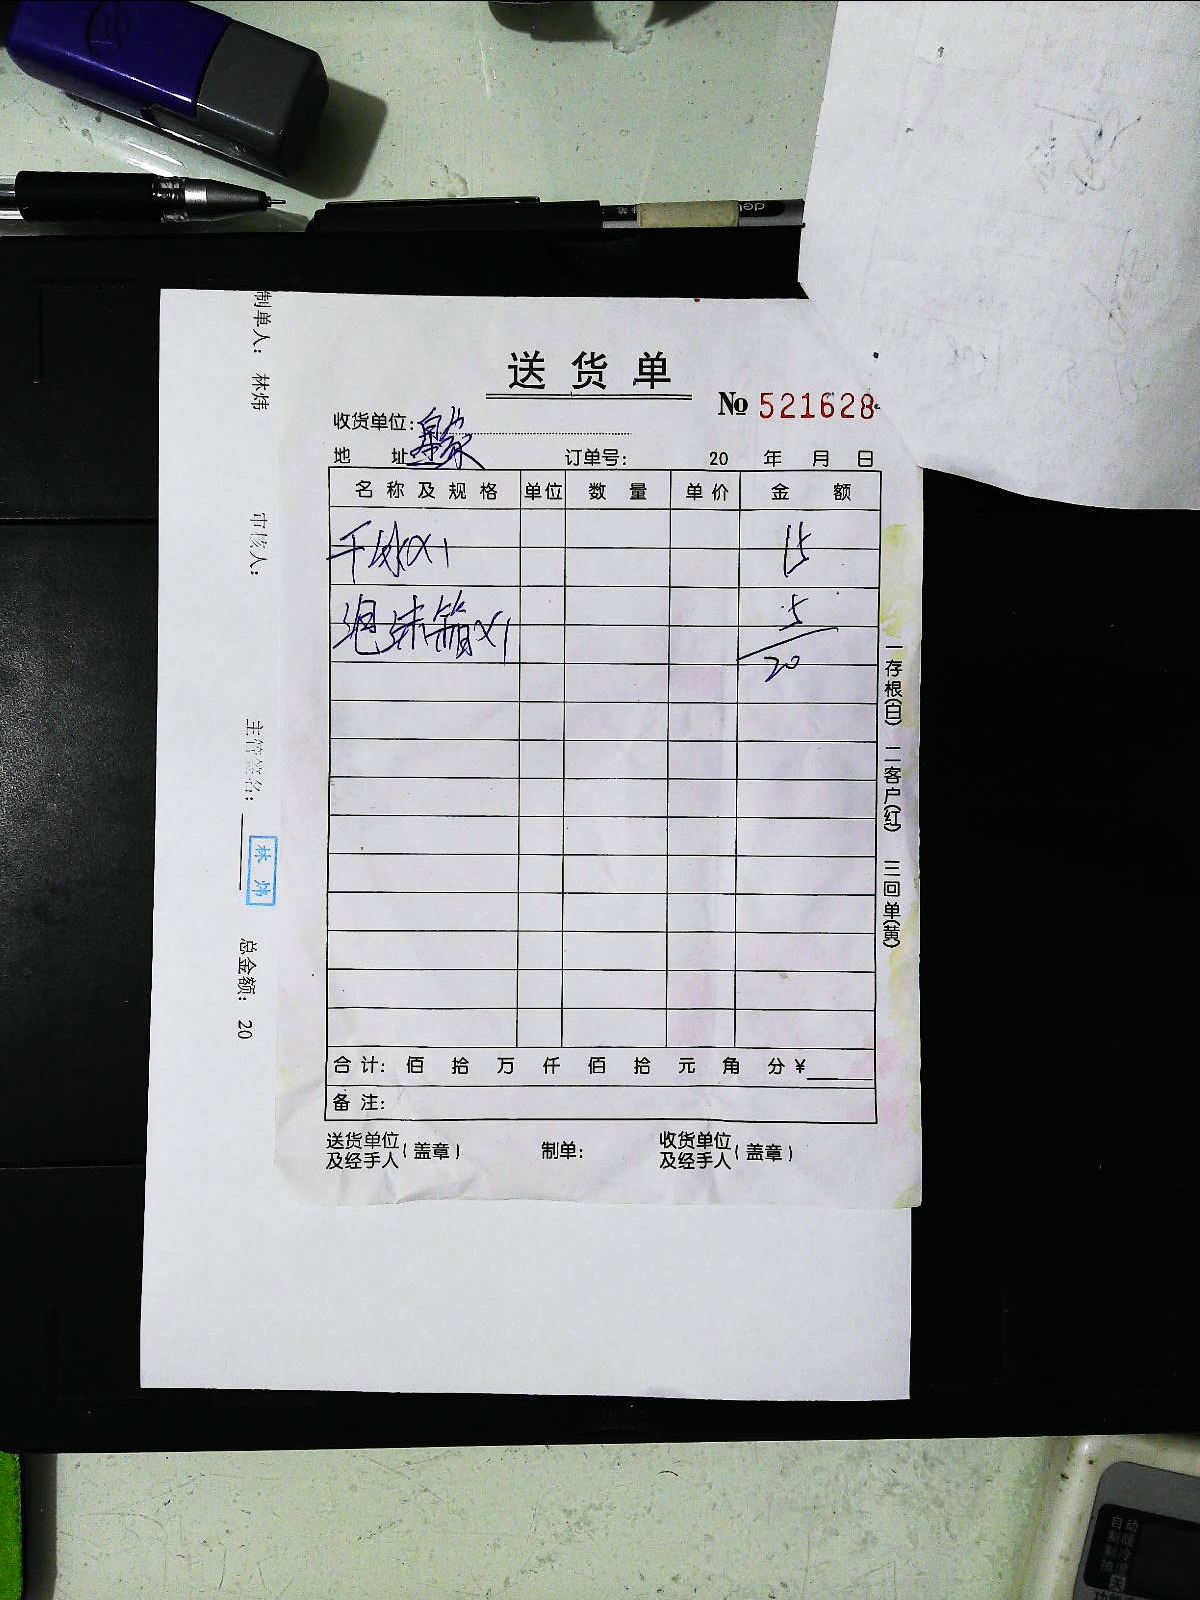 送货单
№ 521628
收货单位: 皇家
地 址
订单号: 20 年 月 日
名称及规格 单位 数量 单价 金额
干冰×1 15
泡沫箱×1 5
20
合计: 佰 拾 万 仟 佰 拾 元 角 分 ¥
备注:
送货单位及经手人(盖章) 制单: 收货单位及经手人(盖章)
一存根(白) 二客户(红) 三回单(黄)
制单人: 林炜 审核人: 主管签名: 总金额: 20
林炜